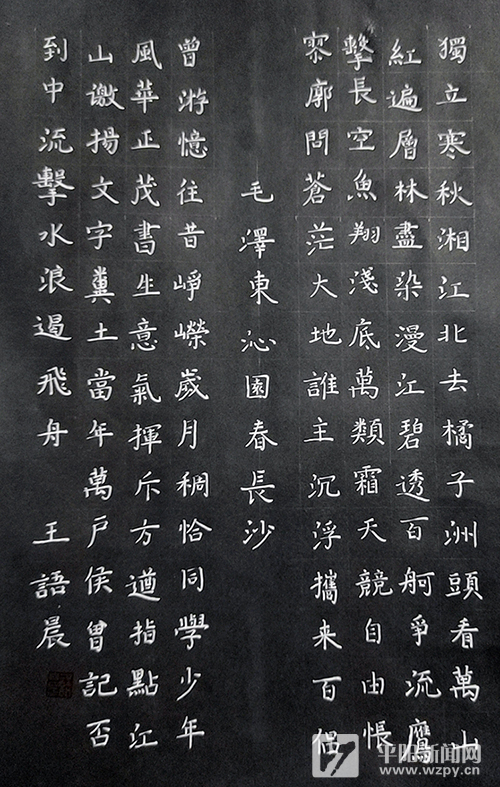 獨立寒秋湘江北去橘子洲頭看萬山
紅遍層林盡染漫江碧透百舸爭流鷹
擊長空魚翔淺底萬類霜天競自由悵
寥廓問蒼茫大地誰主沉浮攜来百侶
毛澤東沁園春長沙
曾游憶往昔崢嶸歲月稠恰同學少年
風華正茂書生意氣揮斥方遒指點江
山激揚文字糞土當年萬戶侯曾記否
到中流擊水浪遏飛舟 王語晨
平阳新闻网
www.wzpy.cn